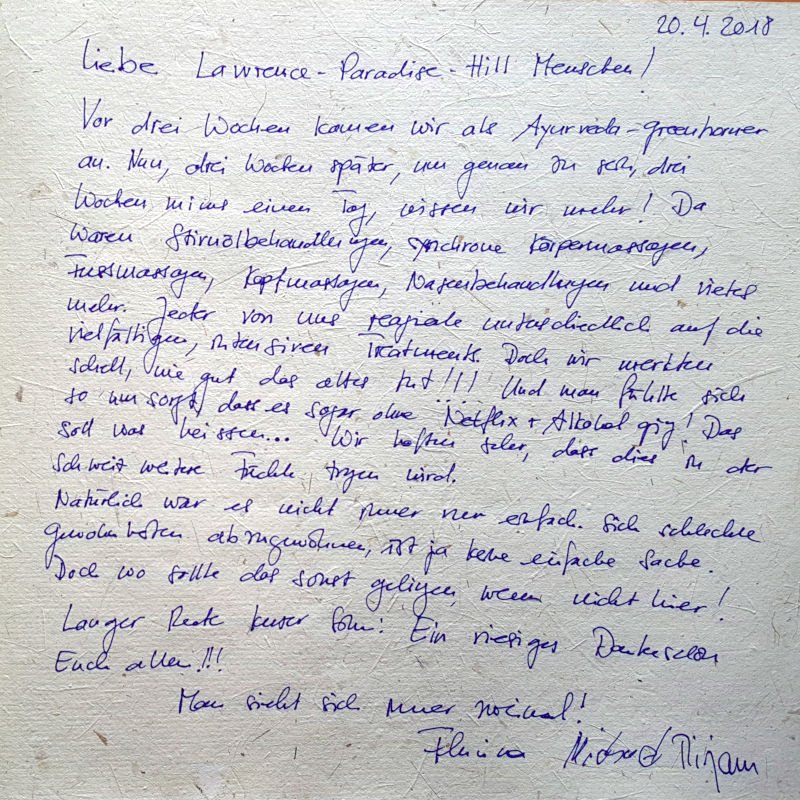 20.4.2018
Liebe Lawrence-Paradise-Hill Menschen!
Vor drei Wochen kamen wir als Ayurveda-greenhorner
an. Nun, drei Wochen später, um genau zu sein, drei
Wochen minus einen Tag, wissen wir mehr! Da
waren Stirnölbehandlungen, synchrone Körpermassagen,
Fussmassagen, Kopfmassagen, Nasenbehandlungen und vieles
mehr. Jeder von uns reagierte unterschiedlich auf die
vielfältigen, intensiven Treatments. Doch wir merkten
schnell, wie gut das alles tut!!! Und man fühlte sich
so umsorgt, dass es sogar ohne Netflix + Alkohol ging! Das
soll was heissen... Wir hoffen sehr, dass dies in der
Schweiz weitere Früchte tragen wird.
Natürlich war es nicht immer nur einfach. Sich schlechte
Gewohnheiten abzugewöhnen, ist ja keine einfache Sache.
Doch wo sollte das sonst gelingen, wenn nicht hier!
Langer Rede kurzer Sinn: Ein riesiges Dankeschön
Euch allen!!!
Man sieht sich immer zweimal!
Mirjam